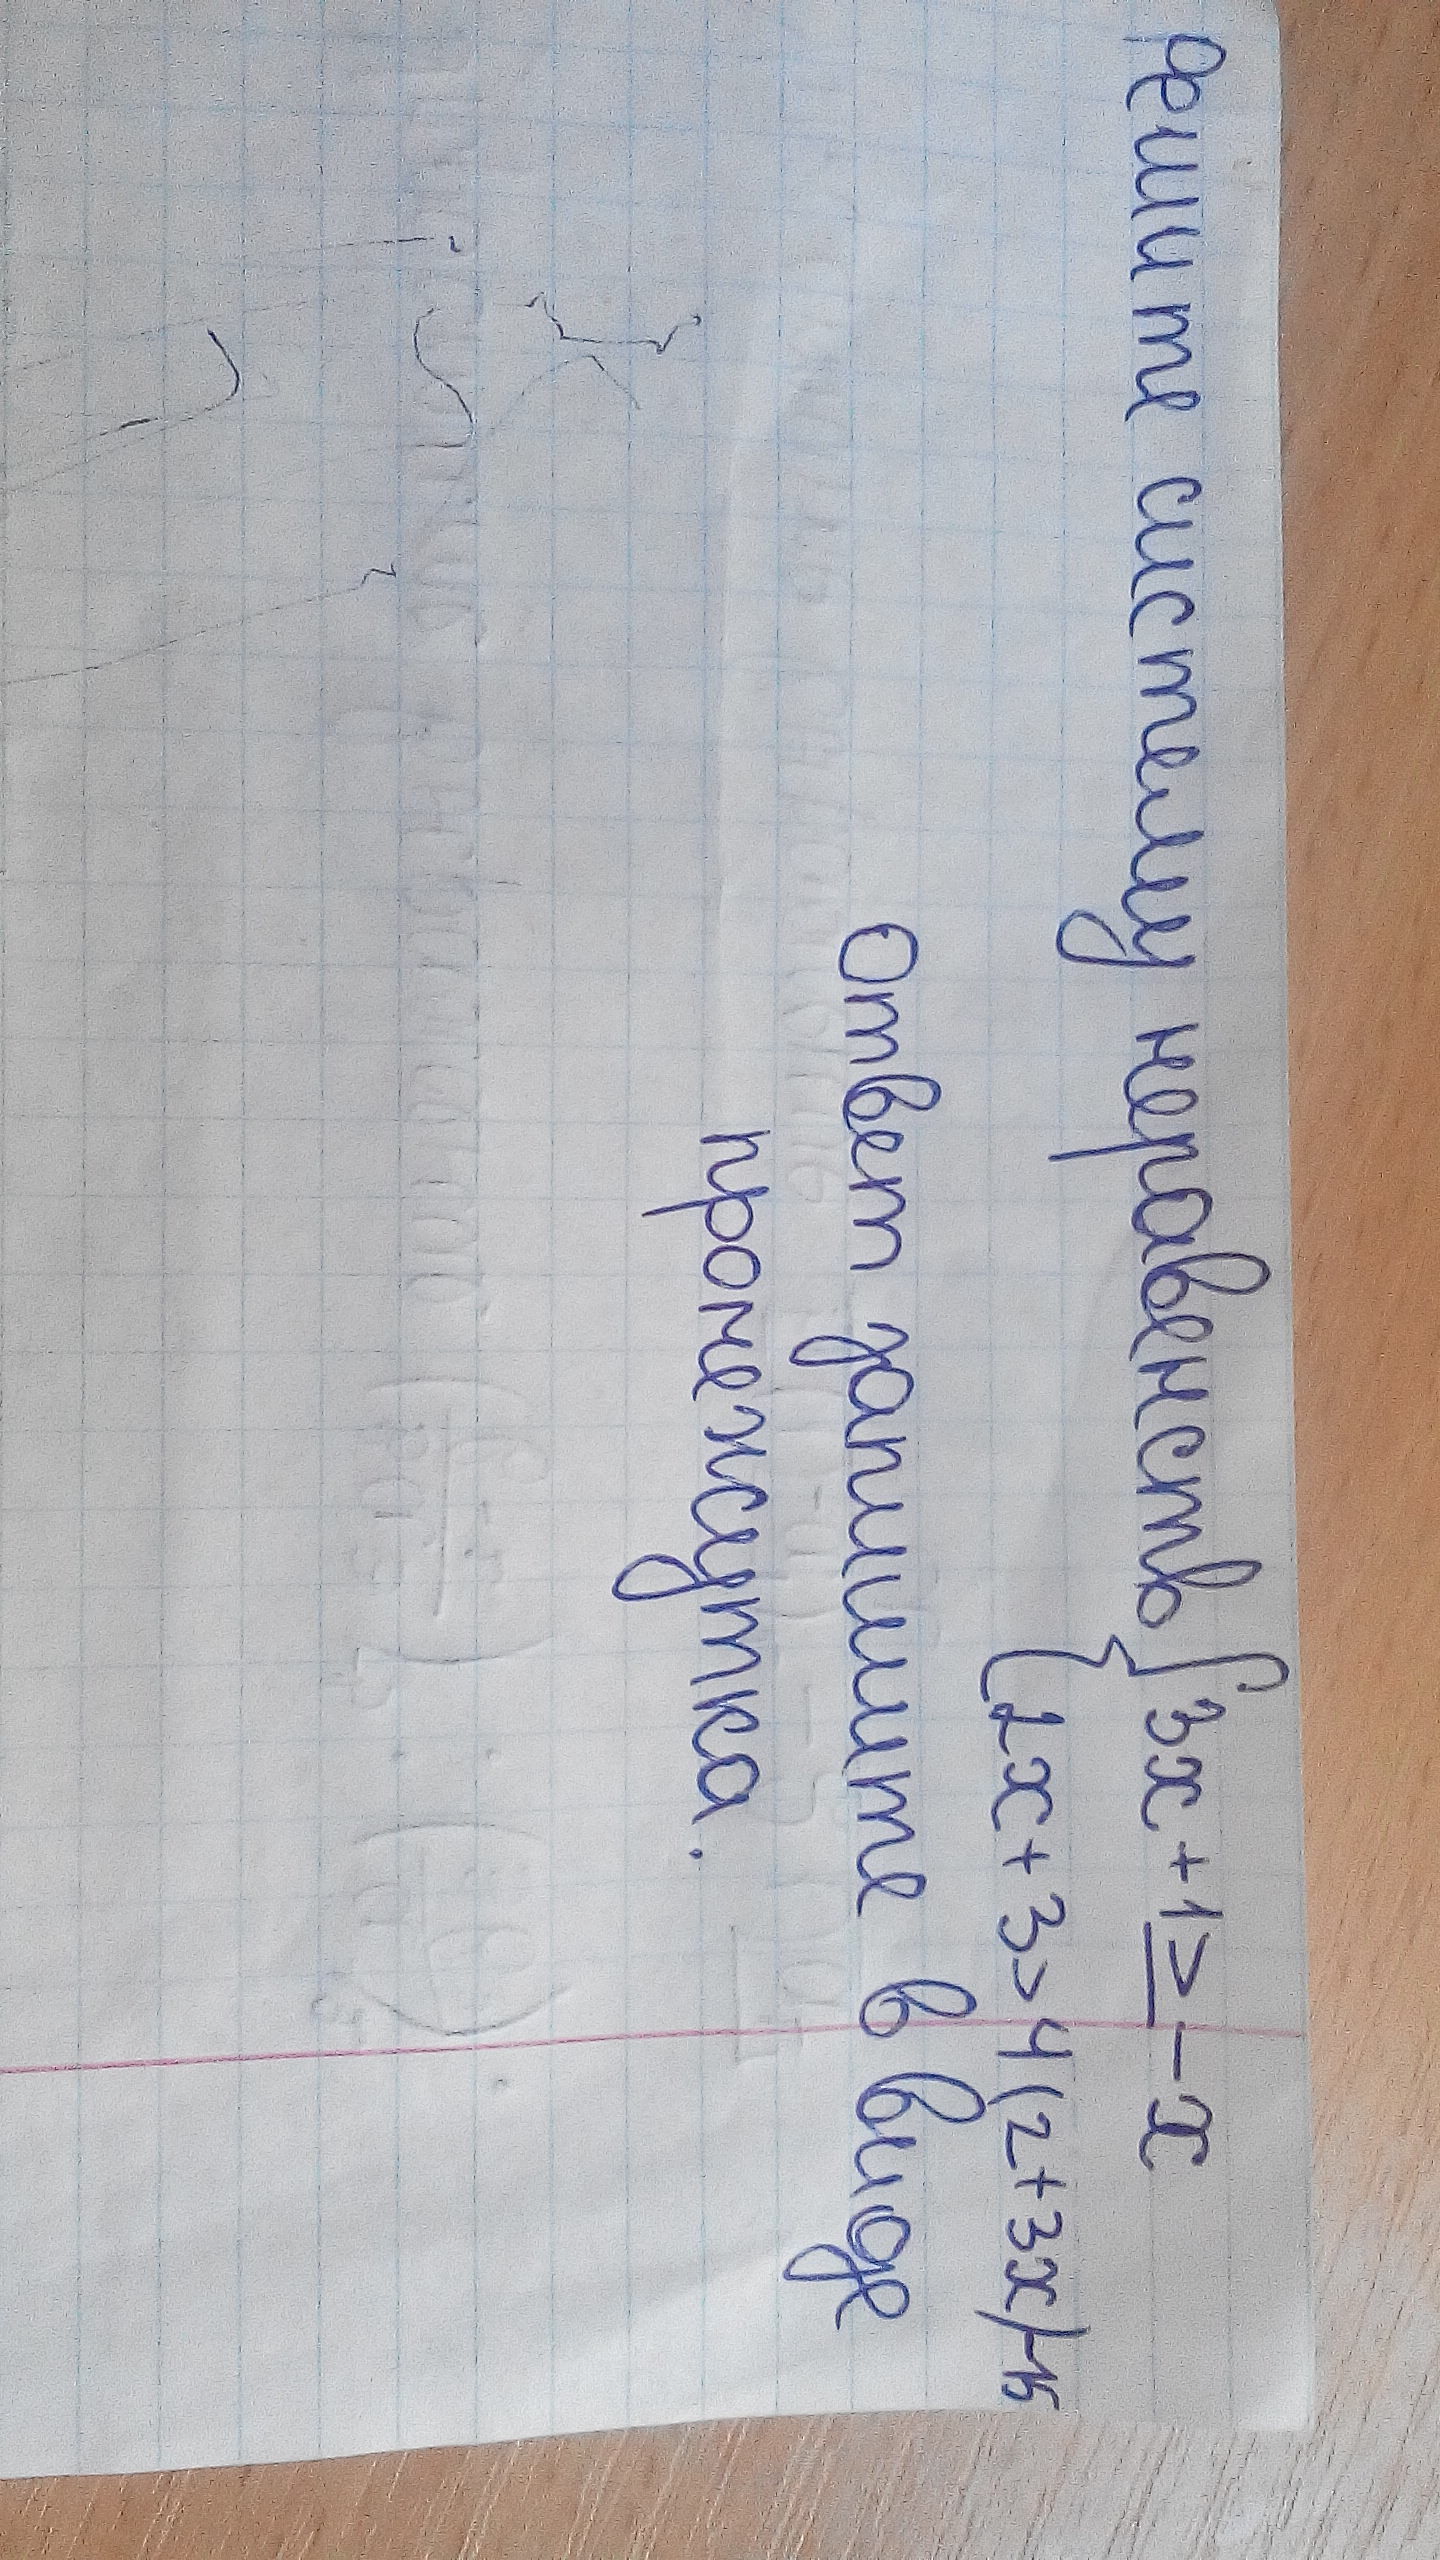 решите систему неравенств { 3x + 1 ≥ - x
2x + 3 > 4(2 + 3x) - 15
Ответ запишите в виде
промежутка.